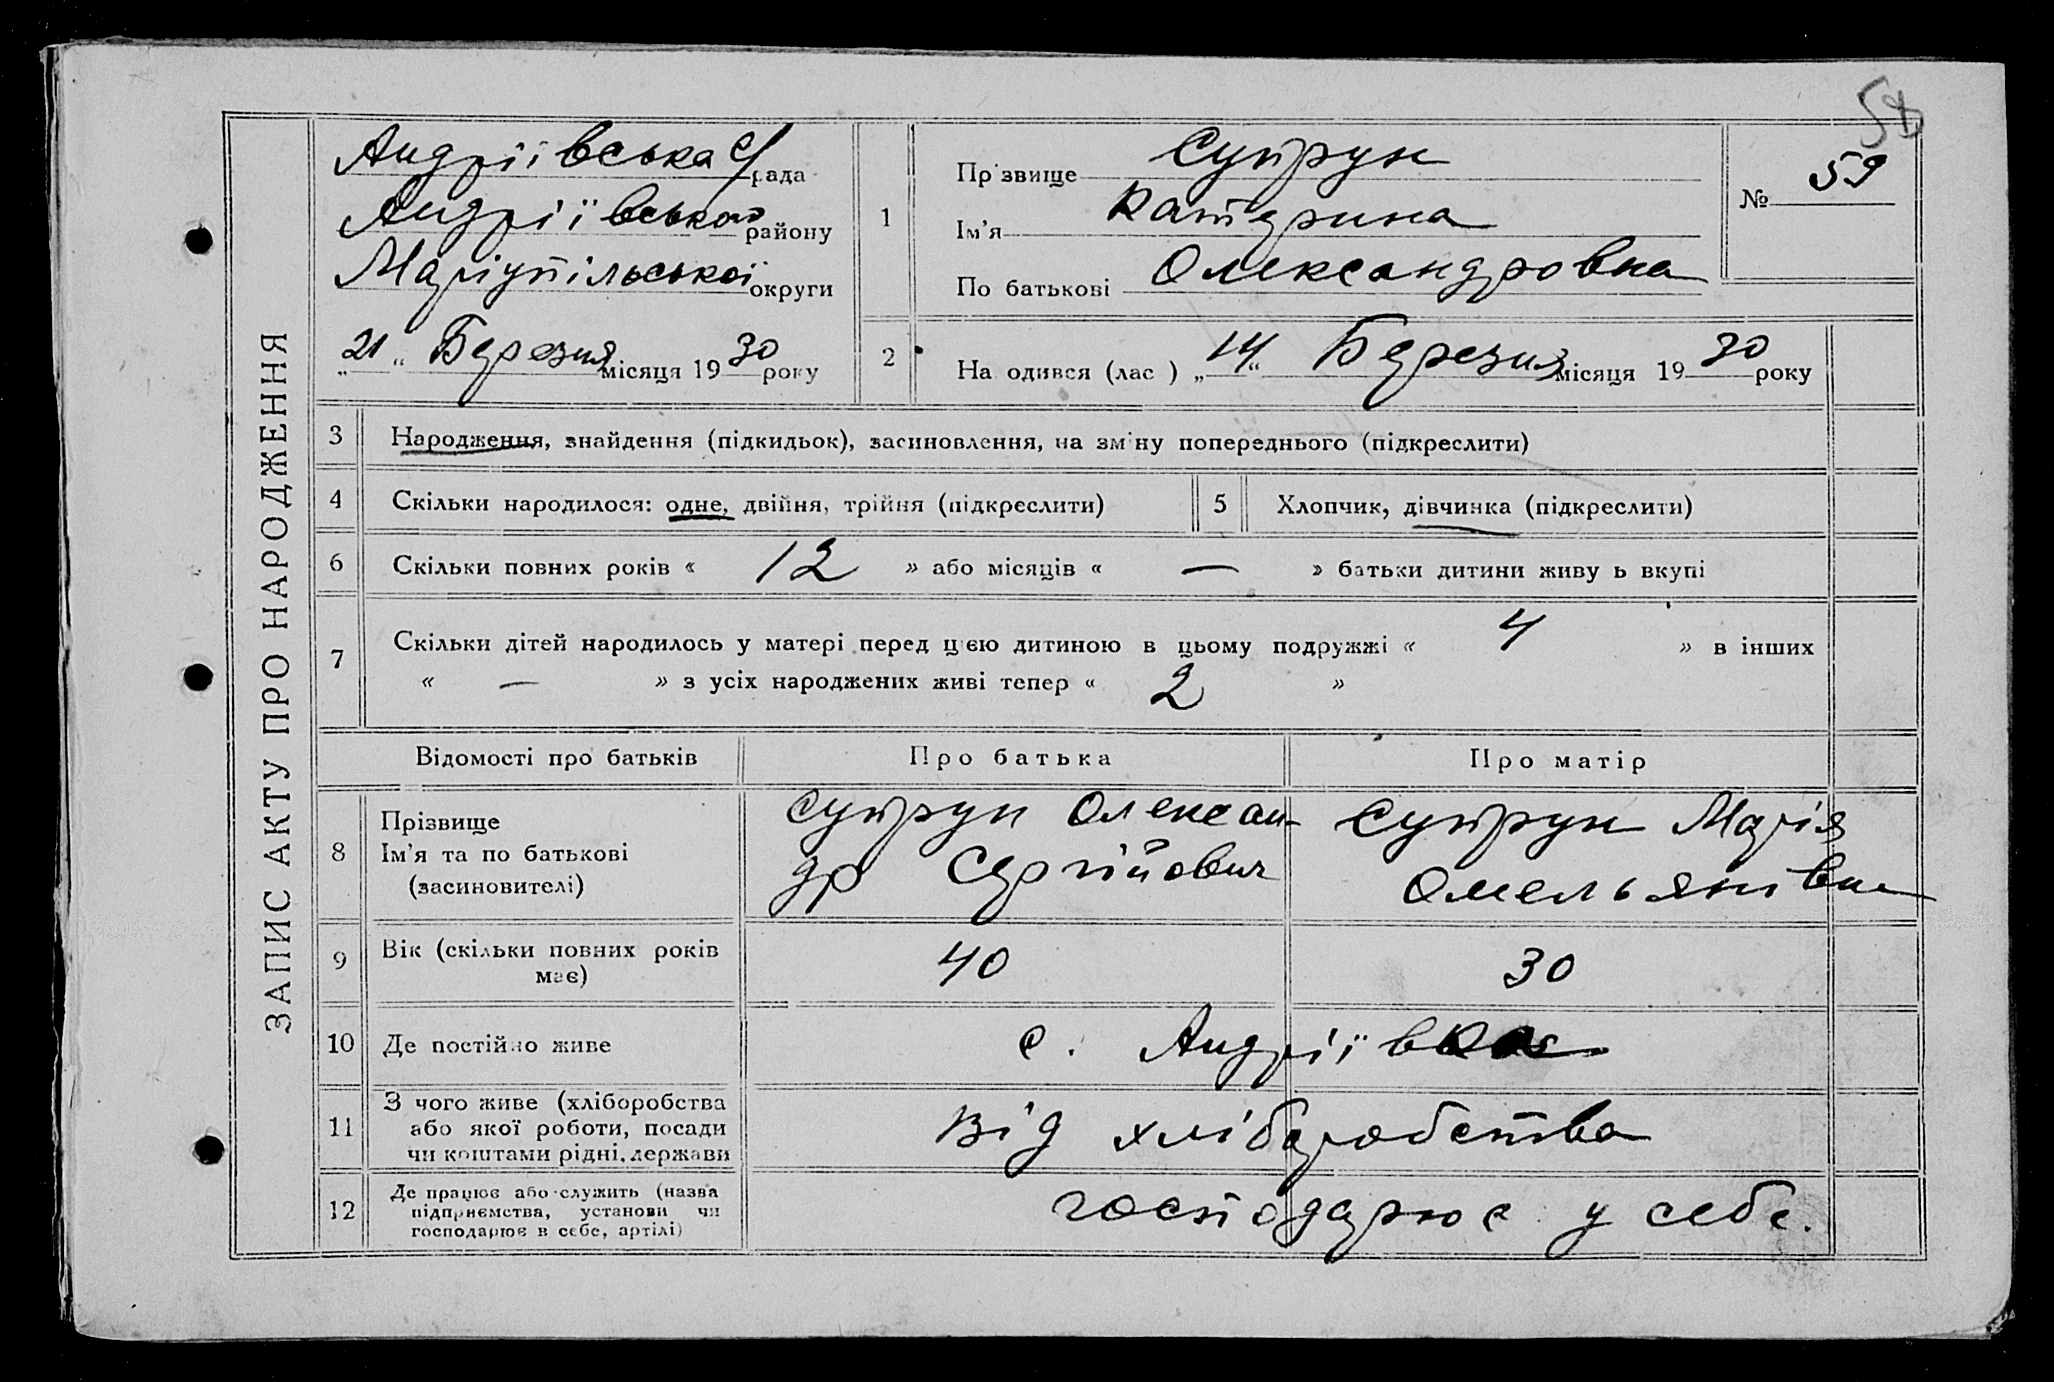 58
ЗАПИС АКТУ ПРО НАРОДЖЕННЯ
Андріївська с/рада
Андріївського району
Маріупільської округи
„21“ Березня місяця 1930 року
1
Прізвище Супрун
Ім’я Катерина
По батькові Олександровна
№ 59
2
На одився (лас ) „14“ Березня місяця 1930 року
3 Народження, знайдення (підкидьок), засиновлення, на зміну попереднього (підкреслити)
4 Скільки народилося: одне, двійня, трійня (підкреслити) 5 Хлопчик, дівчинка (підкреслити)
6 Скільки повних років « 12 » або місяців « — » батьки дитини живу ь вкупі
7 Скільки дітей народилось у матері перед цією дитиною в цьому подружжі « 4 » в інших
« — » з усіх народжених живі тепер « 2 »
Відомості про батьків Про батька Про матір
8 Прізвище
Ім’я та по батькові
(засиновителі)
Супрун Олексан-
др Сергійович
Супрун Марія
Омельянівна
9 Вік (скільки повних років
має)
40 30
10 Де постійно живе с. Андріївка
11 З чого живе (хліборобства
або якої роботи, посади
чи коштами рідні, держави
від хліборобства
12 Де працює або служить (назва
підприємства, установи чи
господарює в себе, артілі)
господарює у себе.